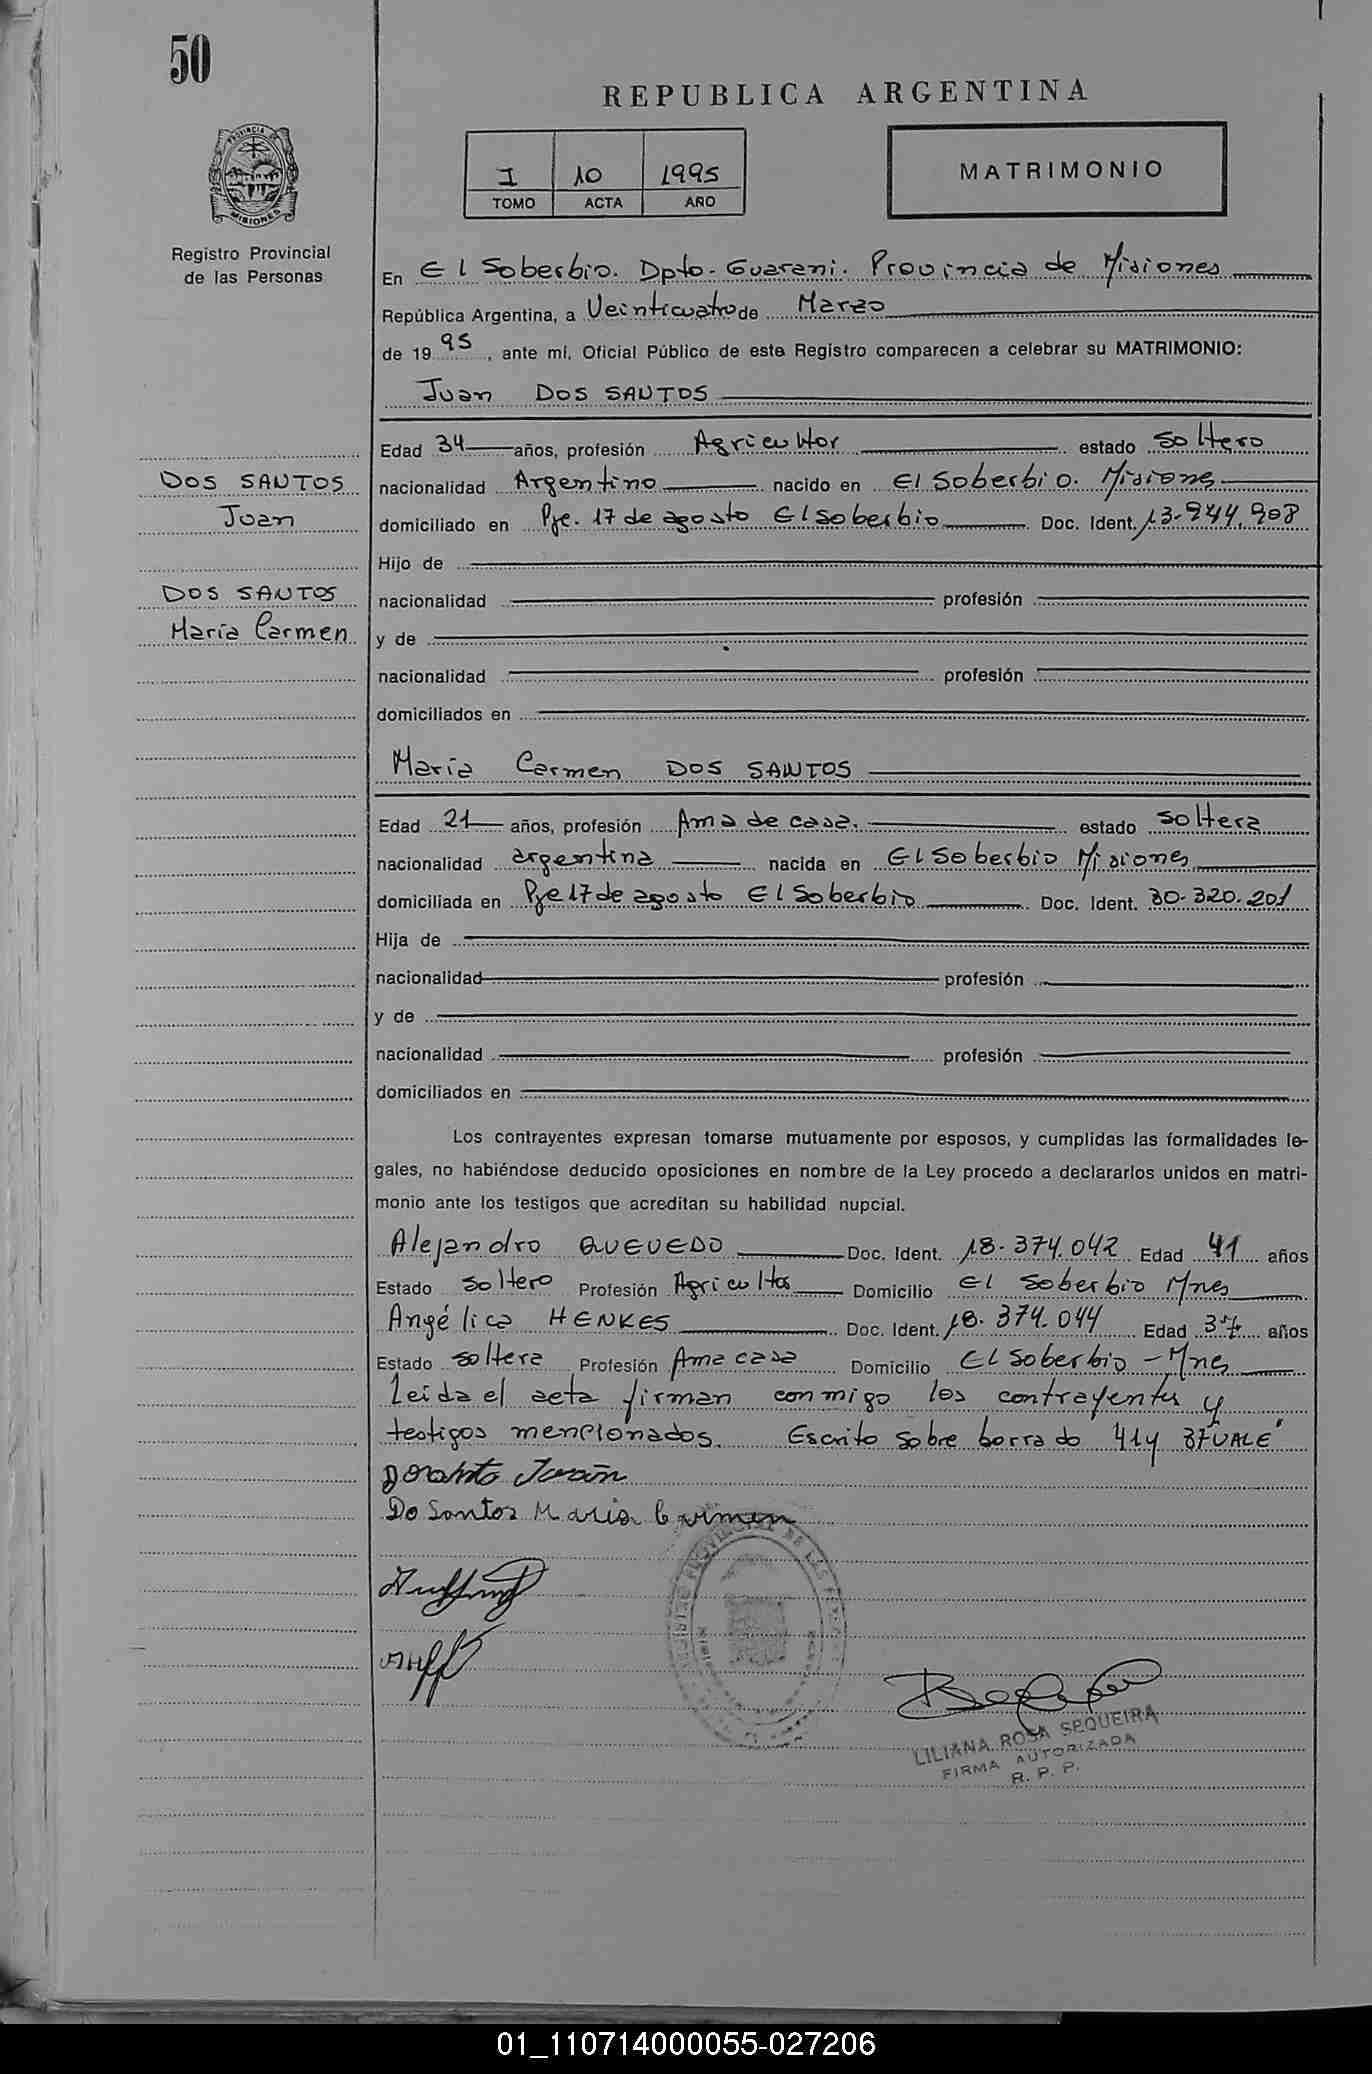 50
REPUBLICA ARGENTINA
I 10 1995
TOMO ACTA AÑO
MATRIMONIO
PROVINCIA DE
MISIONES
Registro Provincial
de las Personas
En El Soberbio. Dpto. Guarani. Provincia de Misiones
República Argentina, a Veinticuatro de Marzo
de 1995, ante mí, Oficial Público de este Registro comparecen a celebrar su MATRIMONIO:
Juan DOS SANTOS
Edad 34 años, profesión Agricultor estado Soltero
DOS SANTOS
nacionalidad Argentino nacido en El Soberbio. Misiones
Juan
domiciliado en Pje. 17 de agosto El Soberbio Doc. Ident. 13.944.908
Hijo de
DOS SANTOS
nacionalidad profesión
María Carmen
y de
nacionalidad profesión
domiciliados en
María Carmen DOS SANTOS
Edad 21 años, profesión Ama de casa. estado soltera
nacionalidad argentina nacida en El Soberbio Misiones
domiciliada en Pje 17 de agosto El Soberbio Doc. Ident. 30.320.201
Hija de
nacionalidad profesión
y de
nacionalidad profesión
domiciliados en
Los contrayentes expresan tomarse mutuamente por esposos, y cumplidas las formalidades le-
gales, no habiéndose deducido oposiciones en nombre de la Ley procedo a declararlos unidos en matri-
monio ante los testigos que acreditan su habilidad nupcial.
Alejandro QUEVEDO Doc. Ident. 18.374.042 Edad 41 años
Estado Soltero Profesión Agricultor Domicilio El Soberbio Mnes
Angélica HENKES Doc. Ident. 18.374.044 Edad 37 años
Estado soltera Profesión Ama casa Domicilio El Soberbio - Mnes
Leida el acta firman conmigo los contrayentes y
testigos mencionados. Escrito sobre borrado 41 y 37 VALE"
Do Santos Maria Carmen
REGISTRO PROVINCIAL DE LAS
LILIANA ROSA SEQUEIRA
FIRMA AUTORIZADA
R. P. P.
01_110714000055-027206